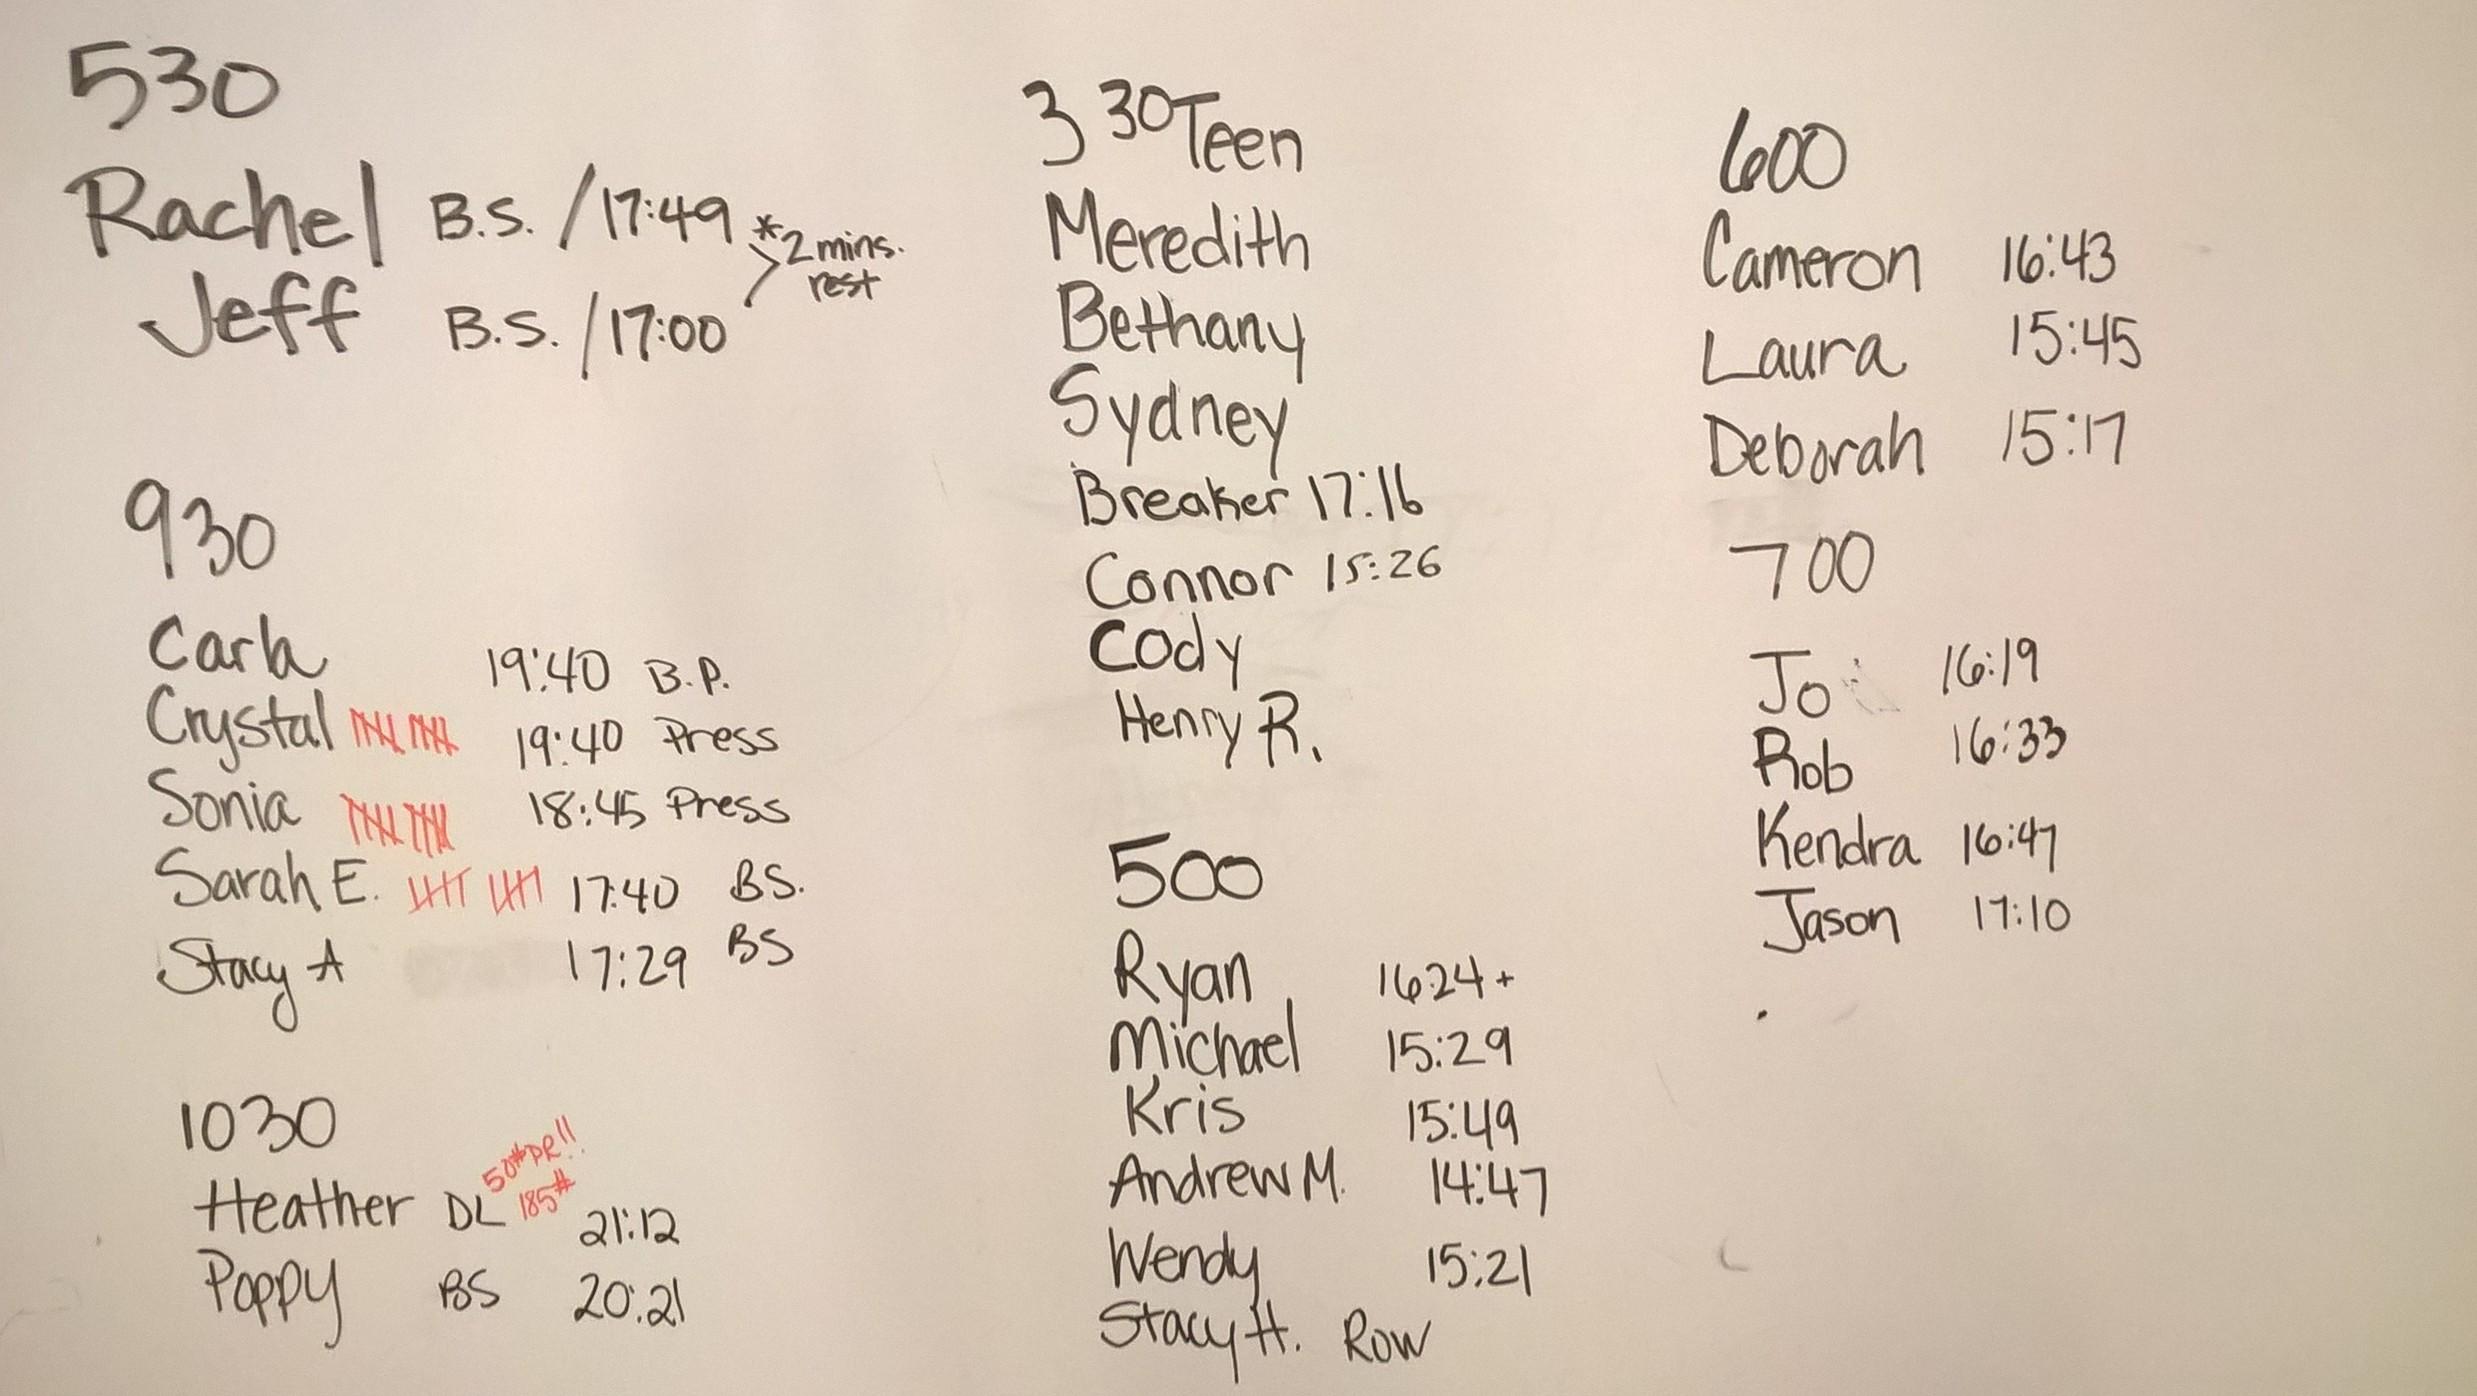 530
Rachel B.S. / 17:49 *2 mins. rest
Jeff B.S. / 17:00
930
Carla 19:40 B.P.
Crystal 19:40 Press
Sonia 18:45 Press
Sarah E. 17:40 BS.
Stacy A 17:29 BS
1030
Heather DL 50# PR!! 185# 21:12
Poppy BS 20:21
3 30 Teen
Meredith
Bethany
Sydney
Breaker 17:16
Connor 15:26
Cody
Henry R.
500
Ryan 16:24+
Michael 15:29
Kris 15:49
Andrew M. 14:47
Wendy 15:21
Stacy H. Row
600
Cameron 16:43
Laura 15:45
Deborah 15:17
700
Jo 16:19
Rob 16:33
Kendra 16:47
Jason 17:10